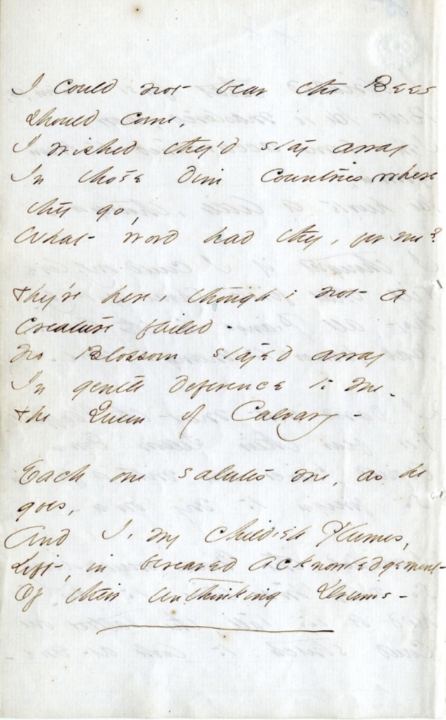 I could not bear the Bees
should come,
I wished they'd stay away
In those dim countries where
they go,
What word had they, for me?
They're here, though; not a
creature failed -
No Blossom stayed away
In gentle deference to me -
The Queen of Calvary -
Each one salutes me, as he
goes,
And I, my childish Plumes,
Lift, in bereaved acknowledgement
Of their unthinking Drums -